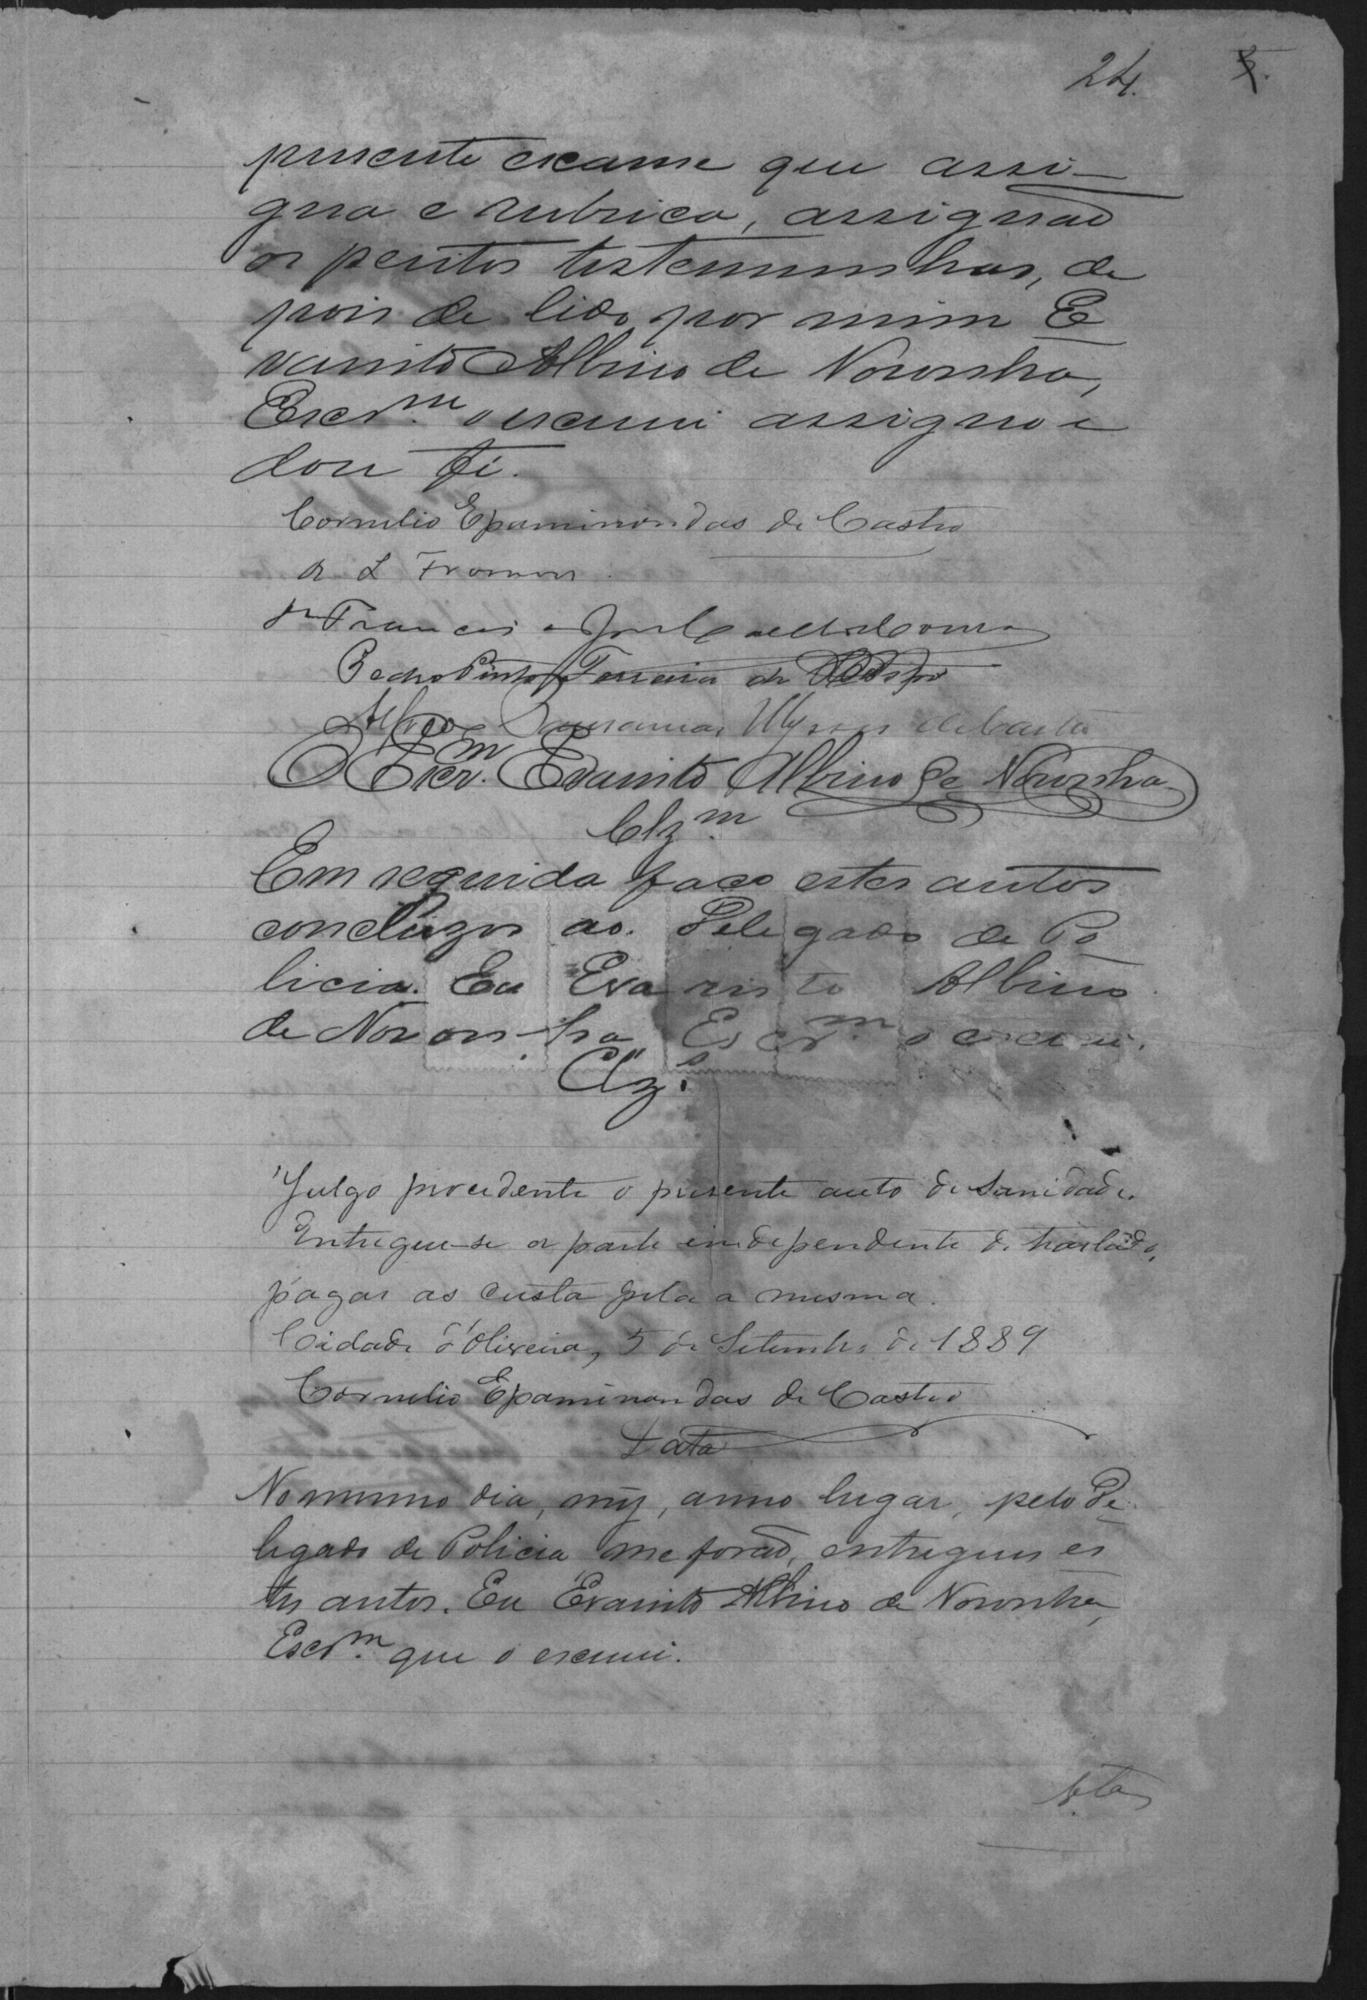 24.
presente exame que assi-
gna e rubrica, assignão
os peritos testemunhas, de
pois de lido por mim E
varisto Albino de Noronha,
Escr.m o escrevi assigno e
dou fé.
Cornelio Epaminondas de Castro
Dr Francisco José Coelho de Moura
Pedro Pinto Ferreira de Castro
Alfredo Ulysses de Castro
O Escr.m Evaristo Albino de Noronha
Clz.m
Em seguida faço estes autos
concluzos ao Delegado de Po
licia. Eu Evaristo Albino
de Noronha Escr.m o escrevi.
Clz.s
Julgo procedente o presente auto de sanidade.
Entregue-se a parte independente de traslado,
pagas as custa pela a mesma.
Cidade d'Oliveira, 5 de Setembro de 1889
Cornelio Epaminondas de Castro
Data
No mesmo dia, mez, anno lugar, pelo De
legado de Policia me forão, entregues es
tes autos. Eu Evaristo Albino de Noronha,
Escr.m que o escrevi.